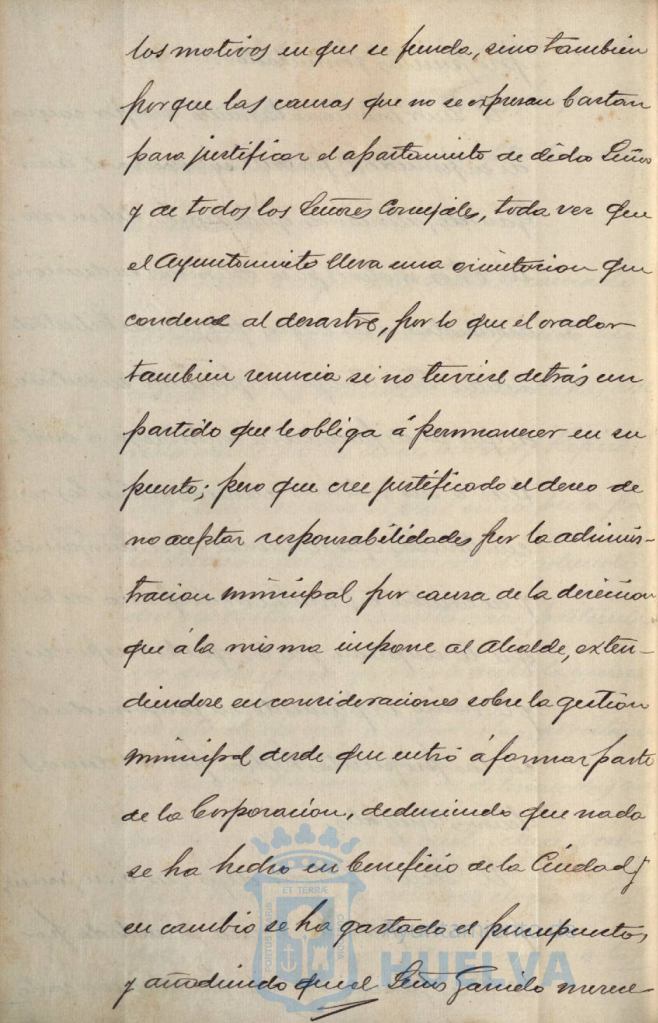 los motivos en que se funda, sino tambien
porque las causas que no se expresan bastan
para justificar el apartamiento de dicho Señor
y de todos los Señores Concejales, toda vez que
el Ayuntamiento lleva una orientacion que
conduce al desastre, por lo que el orador
tambien renuncia si no tuviese detrás un
partido que le obliga á permanecer en su
puesto; pero que cree justificado el deseo de
no aceptar responsabilidades por la adminis-
tracion municipal por causa de la direccion
que á la misma impone el Alcalde, exten-
diendose en consideraciones sobre la gestion
municipal desde que entró á formar parte
de la Corporacion, deduciendo que nada
se ha hecho en beneficio de la Ciudad y
en cambio se ha gastado el presupuesto,
y añadiendo que el Señor Garrido merece
ET TERRÆ
PORTUS MARIS
CUSTODIA
Ayuntamiento
HUELVA